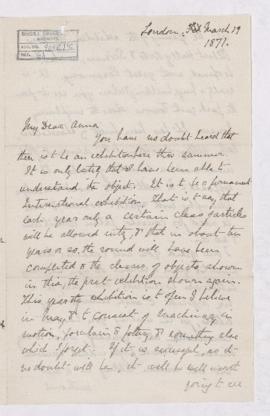 London, March 19
1871.
My Dear Anna
You have no doubt heard that
there is to be an exhibition here this summer.
It is only lately that I have been able to
understand the object. It is to be a permanent
International exhibition, that is to say, that
each year only a certain class of articles
will be allowed entry, & that in about ten
years or so, the round will have been
completed & the classes of objects shown
in this, the first exhibition shown again.
This year the exhibition is to open I believe
in May, & to consist of machinery in
motion, porcelain & pottery, & something else
which I forget. If it is successful, as it
no doubt will be, it will be well worth
going to see